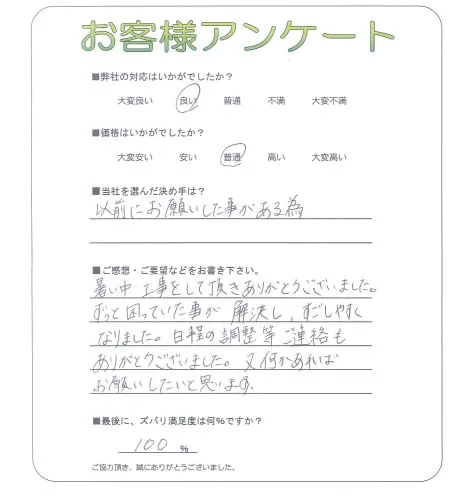 お客様アンケート
■弊社の対応はいかがでしたか？
大変良い 良い 普通 不満 大変不満
■価格はいかがでしたか？
大変安い 安い 普通 高い 大変高い
■当社を選んだ決め手は？
以前にお願いした事がある為
■ご感想・ご要望などをお書き下さい。
暑い中 工事をして頂きありがとうございました。
ずっと困っていた事が 解決し、すごしやすく
なりました。日程の調整等ご連絡も
ありがとうございました。又何かあれば
お願いしたいと思います。
■最後に、ズバリ満足度は何%ですか？
100 %
ご協力頂き、誠にありがとうございました。